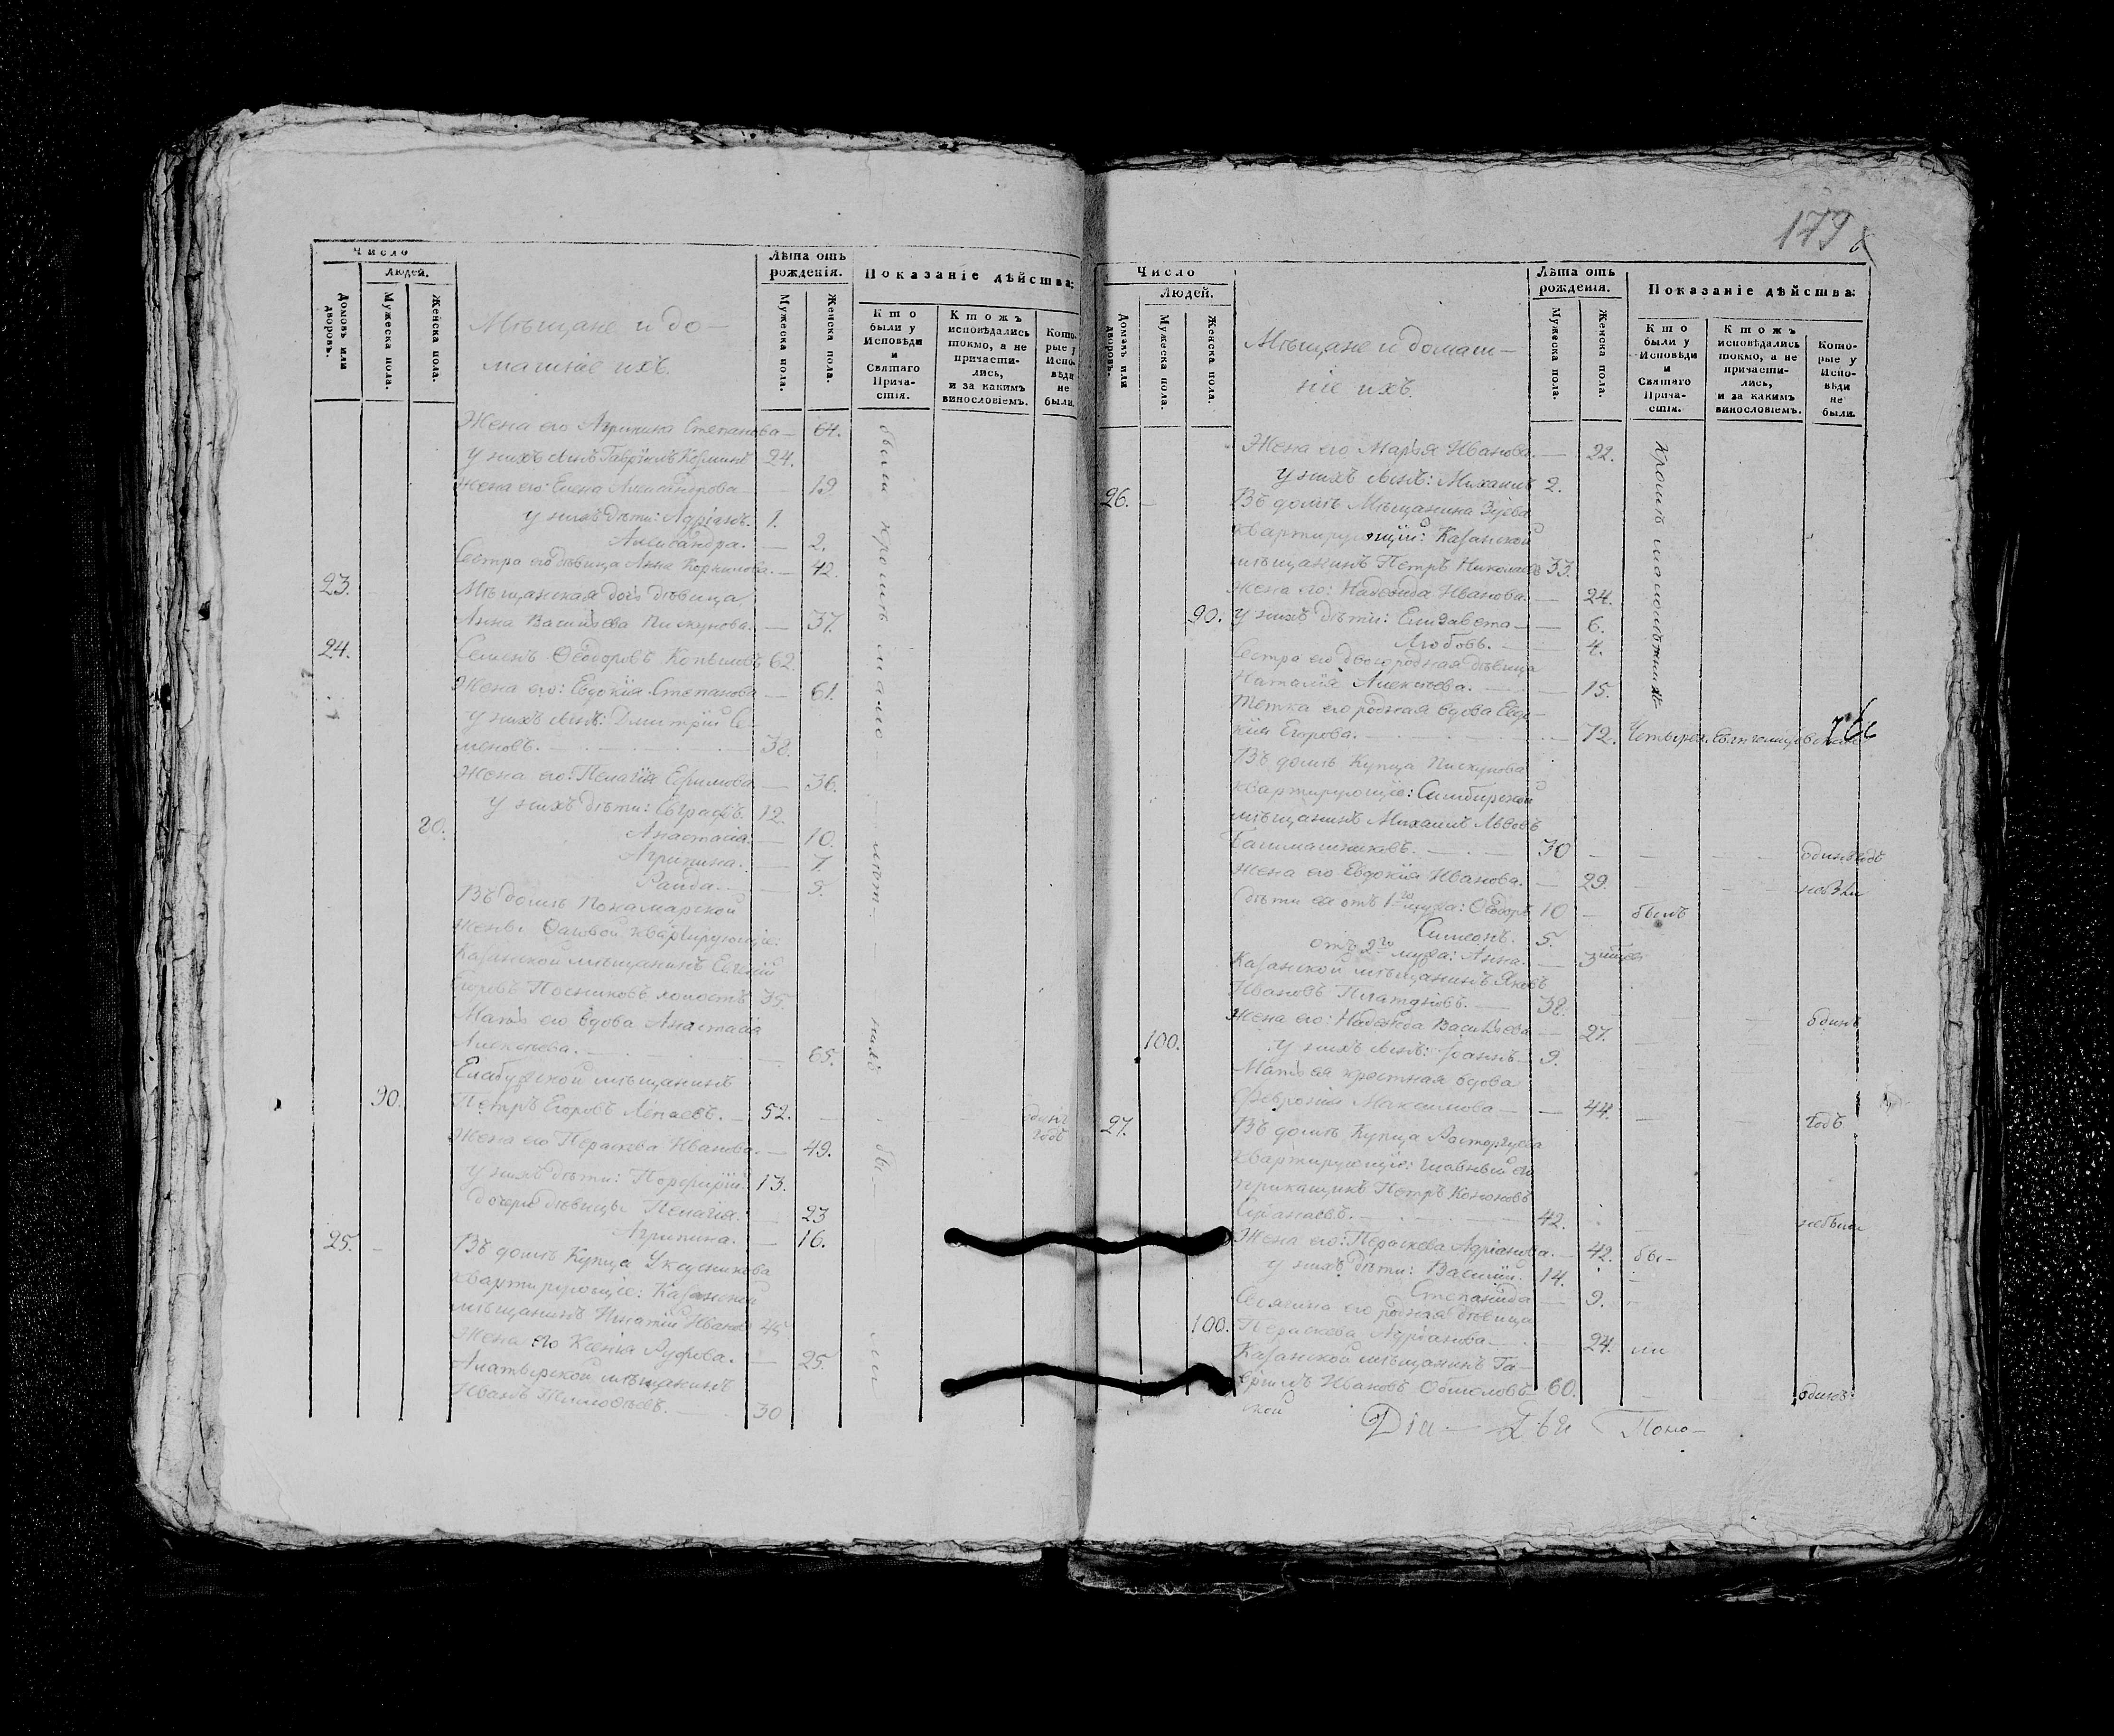 Число
Людей.
Домовъ или дворовъ.
Мужеска пола.
Женска пола.
Мѣщане и до-
машніе ихъ.
Лѣта отъ
рожденія.
Мужеска пола.
Женска пола.
Показаніе дѣйства:
Кто
были у
Исповѣди
и
Святаго
Прича-
стія.
Ктожъ
исповѣдались
токмо, а не
причасти-
лись,
и за какимъ
винословіемъ.
Кото-
рые у
Испо-
вѣди
не
были.
Жена его Агрипина Степанова — 64.
у нихъ сынъ Гавріилъ 24.
Жена его: Елена Александрова — 19
у нихъ дѣти: Адріанъ. 1.
Александра. — 2.
Сестра его дѣвица Анна Корнилова. — 42.
23. Мѣщанская дочь дѣвица
Анна Васильева Пискунова. — 37.
24. Семенъ Ѳеодоровъ Копыловъ 62.
Жена его: Евдокія Степанова — 61.
у нихъ сынъ: Дмитрій Се-
меновъ. — 38.
Жена его: Пелагія Ефимова — 36.
у нихъ дѣти: Евграфъ. 12.
80. Анастасія. — 10.
Агрипина. — 7.
Раида. —
Въ домѣ Понамарской
жены квартирующіе:
Казанской мѣщанинъ Евгеній
Егоровъ Посниковъ холостъ 35.
Мать его вдова Анастасія
Алексѣева. — 65.
Елабужской мѣщанинъ
90. Петръ Егоровъ — 52. — одинъ
годъ
Жена его Параскева Иванова. — 49.
у нихъ дѣти: Порфирій. 13.
дочери дѣвицы Пелагія. — 23
Агрипина. — 16.
25. Въ домѣ Купца Уксусникова
квартирующіе: Казанской
мѣщанинъ Игнатій Ивановъ 45
Жена его Ксенія Руфова. — 25.
Алатырской мѣщанинъ
Иванъ Тимоѳѣевъ. — 30
были кромѣ мало-
лѣт-
нихъ
179
Число
Людей.
Домовъ или дворовъ.
Мужеска пола.
Женска пола.
Мѣщане и домаш-
ніе ихъ.
Лѣта отъ
рожденія.
Мужеска пола.
Женска пола.
Показаніе дѣйства:
Кто
были у
Исповѣди
и
Святаго
Прича-
стія.
Ктожъ
исповѣдались
токмо, а не
причасти-
лись,
и за какимъ
винословіемъ.
Кото-
рые у
Испо-
вѣди
не
были.
Жена его Марья Иванова. — 22.
у нихъ сынъ: Михаилъ 2.
26. — Въ домѣ Мѣщанина Зуева
квартирующій: Казанской
мѣщанинъ Петръ Николаевъ 33.
Жена его: Надежда Иванова. — 24.
90. у нихъ дѣти: Елизавета — 6.
Любовь. — 4.
Сестра его двоюродная дѣвица
Наталія Алексѣева. — 15.
Тетка его родная вдова Евдо-
кія Егорова. — 72.
кромѣ малолѣтнихъ
Въ домѣ Купца Пискунова
квартирующіе: Симбирской
мѣщанинъ Михаилъ Львовъ
Башмашниковъ. — 30 — одинъ годъ
Жена его Евдокія Иванова. — 29. — не были
Дѣти ея отъ 1го мужа: Ѳеодоръ 10 — былъ
Симеонъ. 5.
отъ 2го мужа: Анна. — 3
Казанской мѣщанинъ Яковъ
Ивановъ Платоновъ. — 38. — одинъ
Жена его: Надежда Васильева — 27.
100. у нихъ сынъ: Іоаннъ 9.
Мать ея крестная вдова
Февронія Максимова — 44. — годъ
27. Въ домѣ Купца Расторгуева
квартирующіе: главный его
прикащикъ Петръ
42. не были
Жена его: Параскева Адріанова. — 42. бы-
у нихъ дѣти: Василій. 14.
Степанида — 9.
Своячина его родная дѣвица
100. Параскева Адріанова — 24. ли
Казанской мѣщанинъ Га-
вріилъ Ивановъ 60. — одинъ
Діа-
Поно-